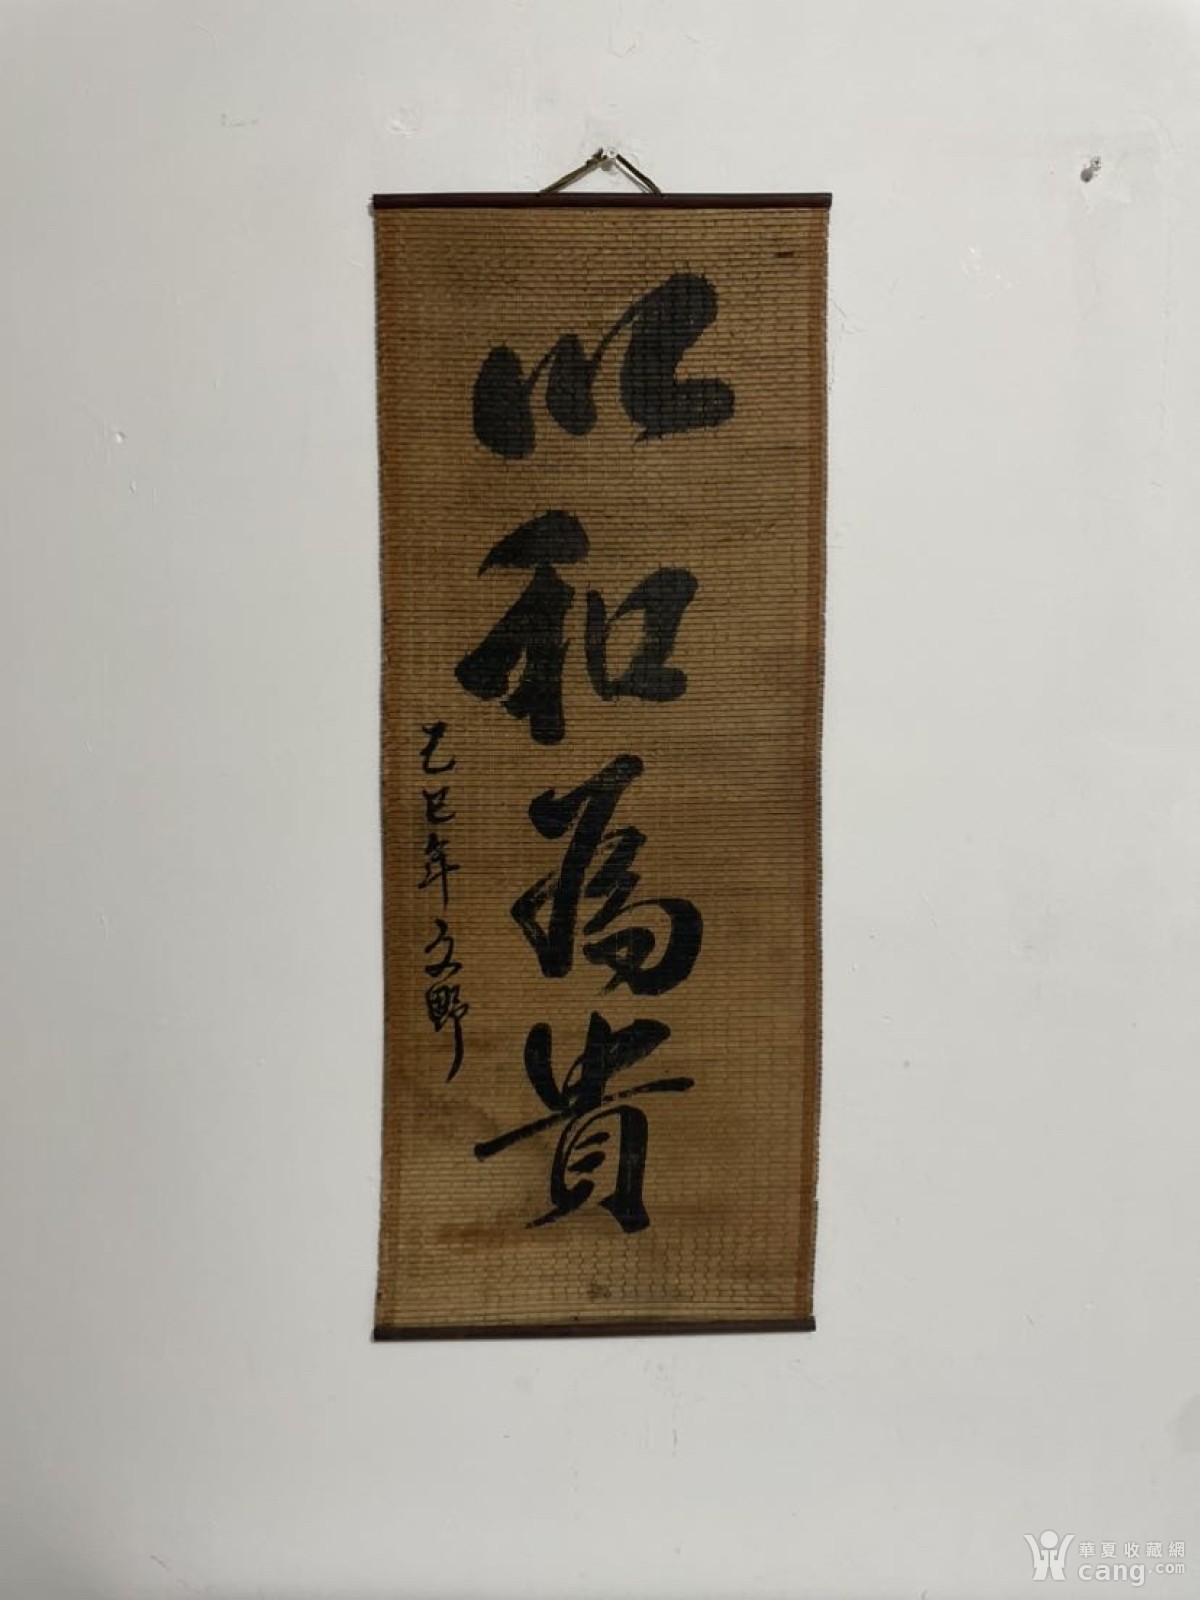 以和為貴
乙巳年文野
華夏收藏網
cang.com